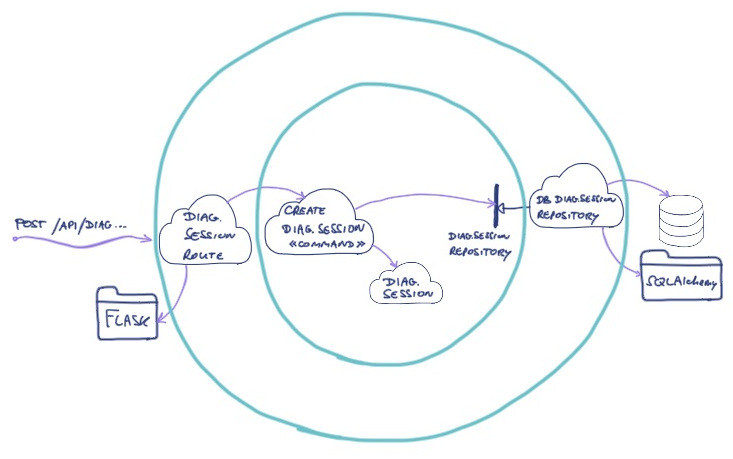 POST /API/DIAG...
DIAG.
SESSION
ROUTE
FLASK
CREATE
DIAG. SESSION
«COMMAND»
DIAG.
SESSION
DIAG.SESSION
REPOSITORY
DB DIAG.SESSION
REPOSITORY
SQLAlchemy